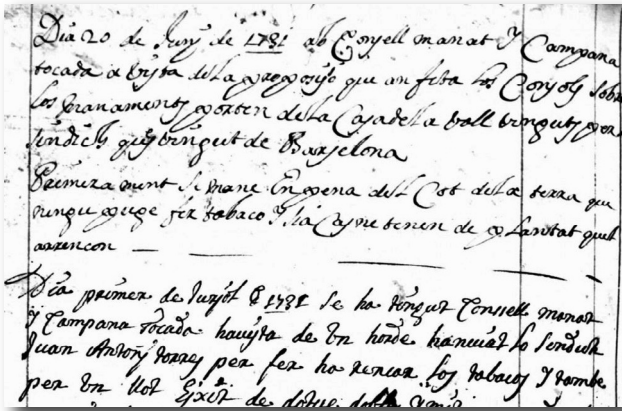 Dia 20 de Juny de 1781 ab Consell manat y Campana
tocada a vista de la proposisio que an feta los Consols sobre
los manaments porten de la Casa de la Vall vinguts per
sindichs quis vingut de Barselona
Primera ment se mane En pena dell Cot de la terra que
ningu puge fer tabaco y si a Cas ne tenen de plantat quel
arrencon
Dia primer de Juriol 1781 se ha tingut Consell manat
y Campana tocada ha vista de un horde ha enviat lo Sindich
Juan Antoni torres per fer ha rencar los tabacos y tambe
per un llot de dotse